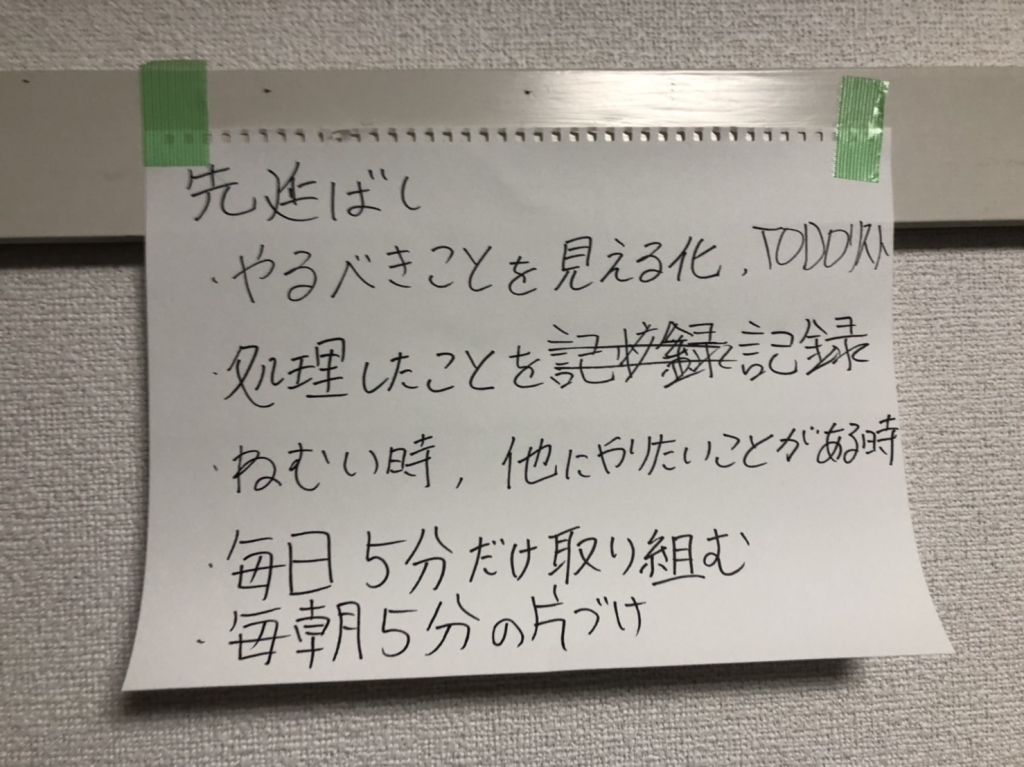 先延ばし
・やるべきことを見える化、TODOリスト
・処理したことを記録
・ねむい時、他にやりたいことがある時
・毎日5分だけ取り組む
・毎朝5分の片づけ